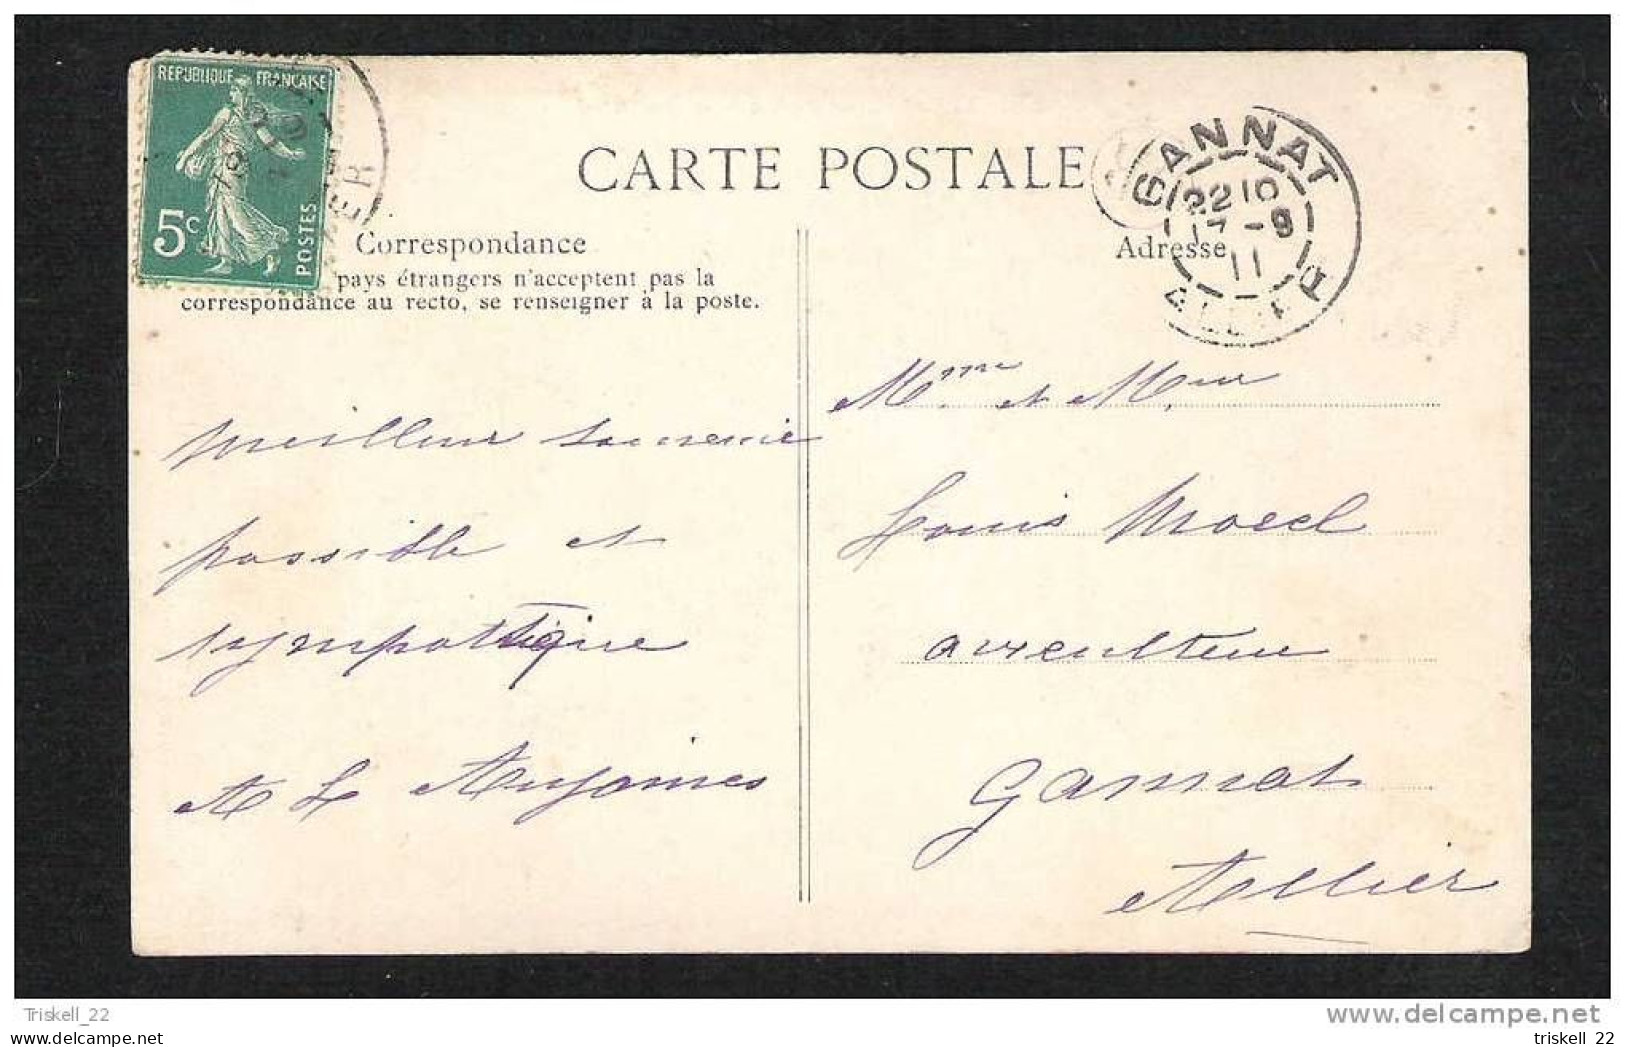 REPUBLIQUE FRANCAISE
5c
POSTES
ER
CARTE POSTALE
GANNAT
22 10
17 - 9
11
ALLIER
Correspondance
pays étrangers n'acceptent pas la
correspondance au recto, se renseigner à la poste.
Adresse
Meilleur souvenir
possible et
sympattique
A L
Mme et Meur
Louis
aviculteur
Gannat
Allier
Triskell_22
www.delcampe.net
triskell_22
triskell_22